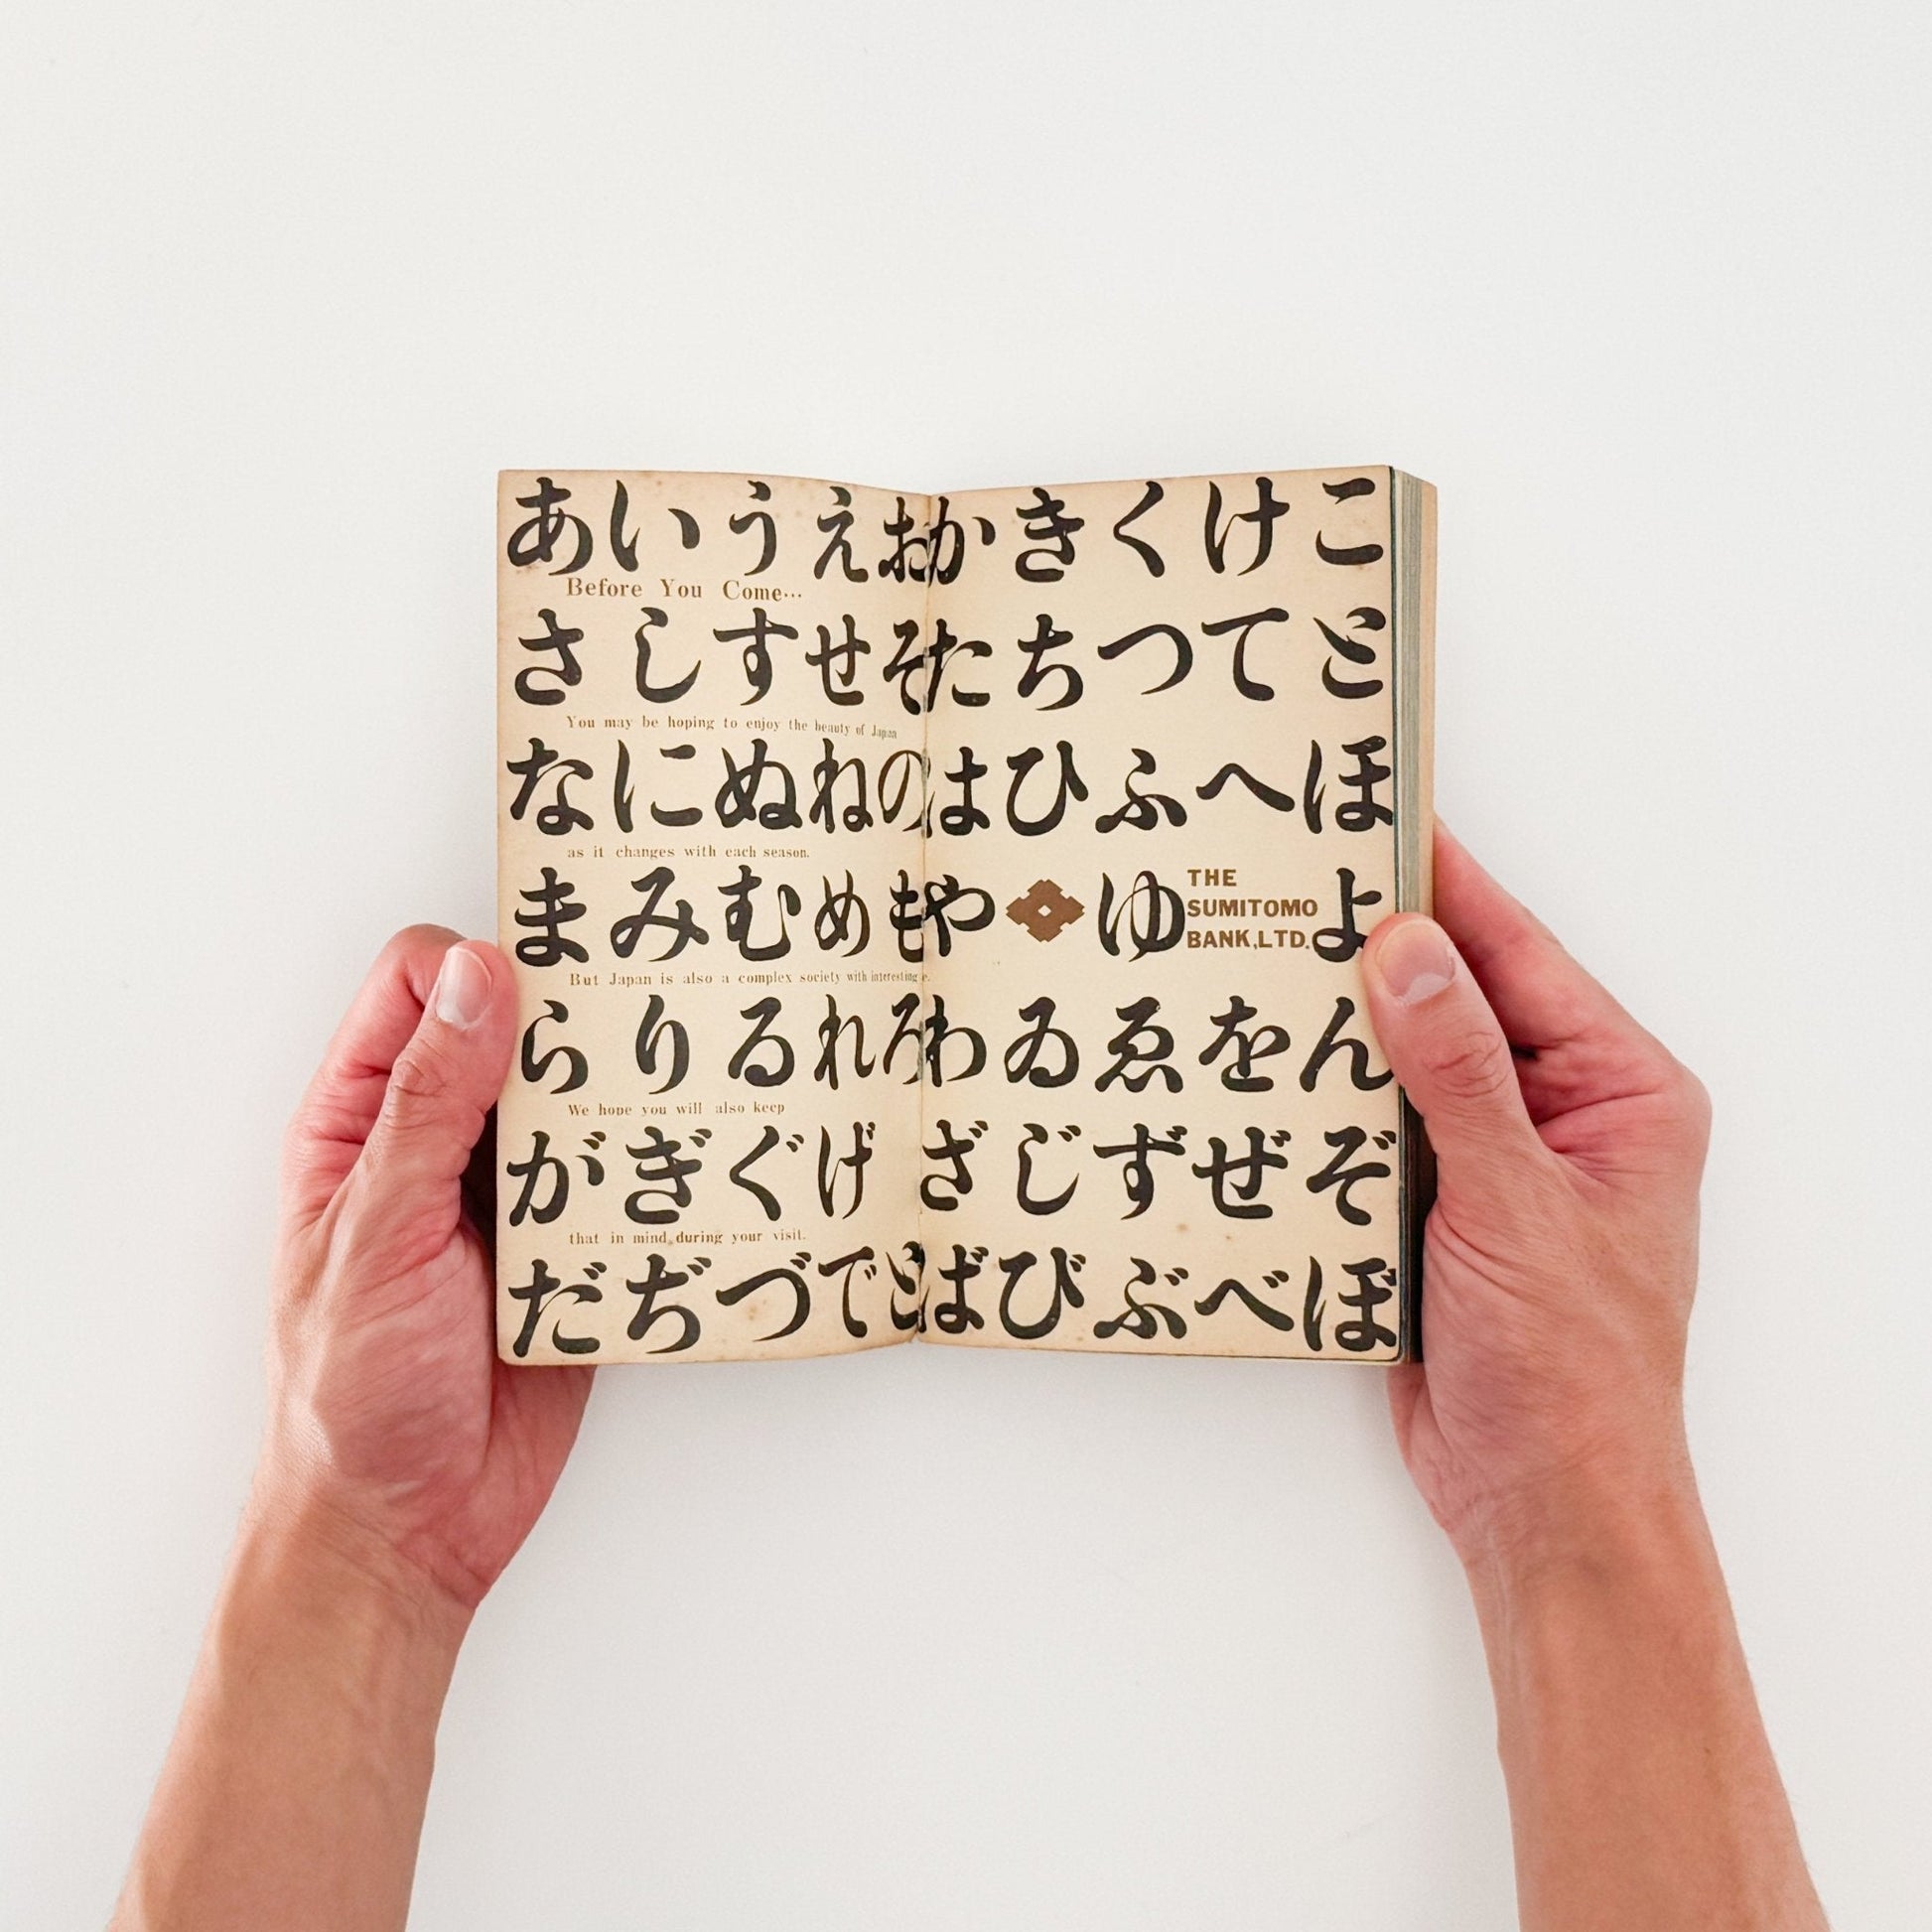 あいうえおかきくけこ
Before You Come...
さしすせそたちつてと
You may be hoping to enjoy the beauty of Japan
なにぬねのはひふへほ
as it changes with each season.
まみむめもやゆ
THE
SUMITOMO
BANK,LTD.
よ
But Japan is also a complex society with interesting
らりるれろわゐゑをん
We hope you will also keep
がぎぐげざじずぜぞ
that in mind during your visit.
だぢづでどばびぶべぼ